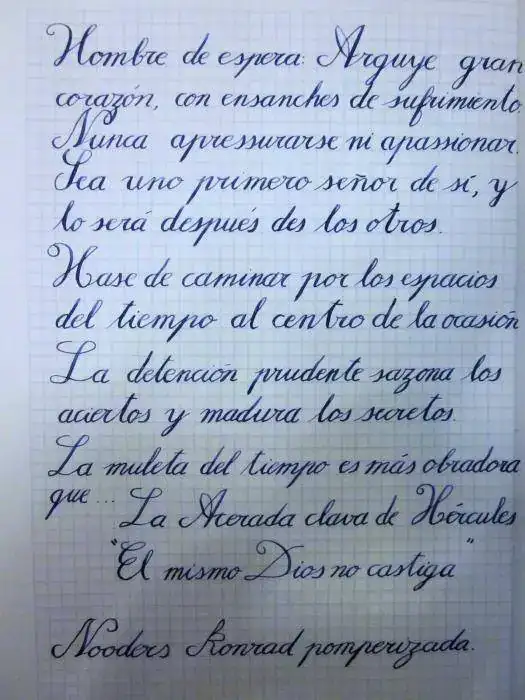 Hombre de espera: Arguye gran
corazón, con ensanches de sufrimiento.
Nunca apressurarse ni apassionar.
Sea uno primero señor de sí, y
lo será después des los otros.
Hase de caminar por los espacios
del tiempo al centro de la ocasión
La detención prudente sazona los
aciertos y madura los secretos.
La muleta del tiempo es más obradora
que... La Acerada clava de Hércules
"El mismo Dios no castiga"
Nooders Konrad pomperizada.